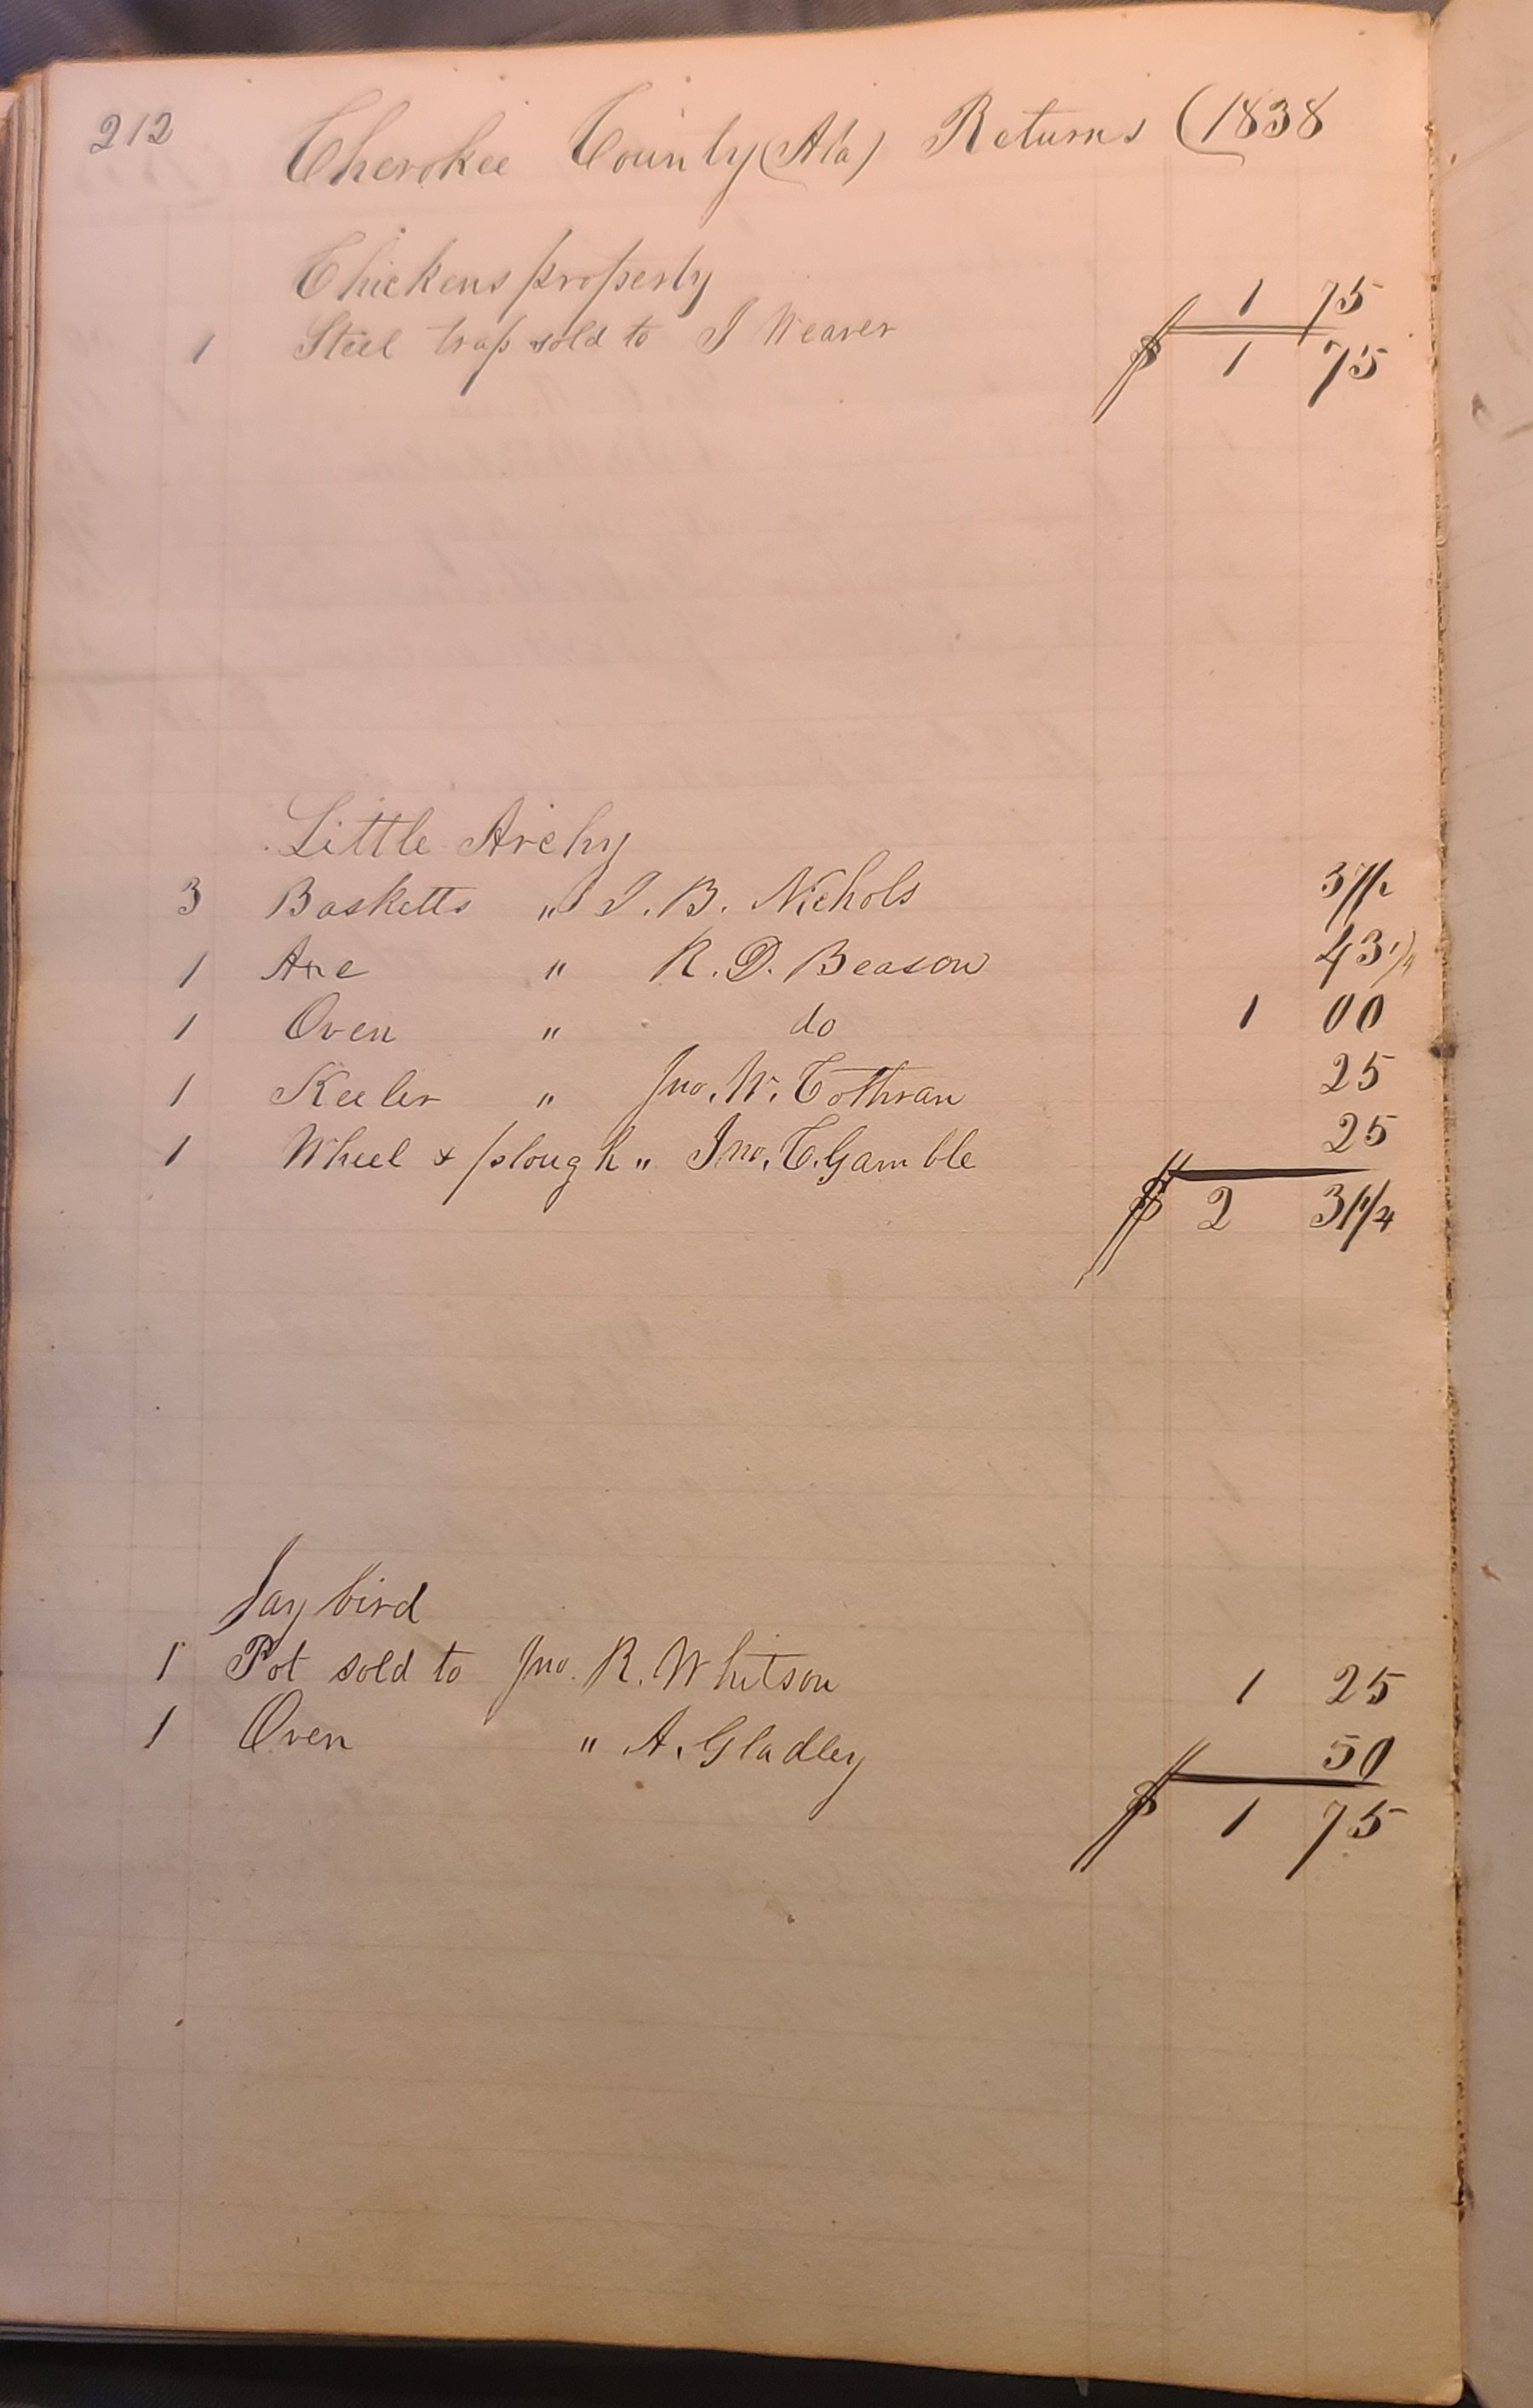 212 Cherokee County (Ala) Returns (1838
Chickens property
1 Steel trap sold to J Weaver 1 75
$ 1 75
Little Archy
3 Basketts " J. B. Nichols 37 1/2
1 Axe " R. D. Beason 43 3/4
1 Oven " do 1 00
1 Keeler " Jno. W. Cothran 25
1 Wheel & plough " Jno. C. Gamble 25
$ 2 31 1/4
Jay bird
1 Pot sold to Jno. R. Whitson 1 25
1 Oven " A. Gladley 50
$ 1 75